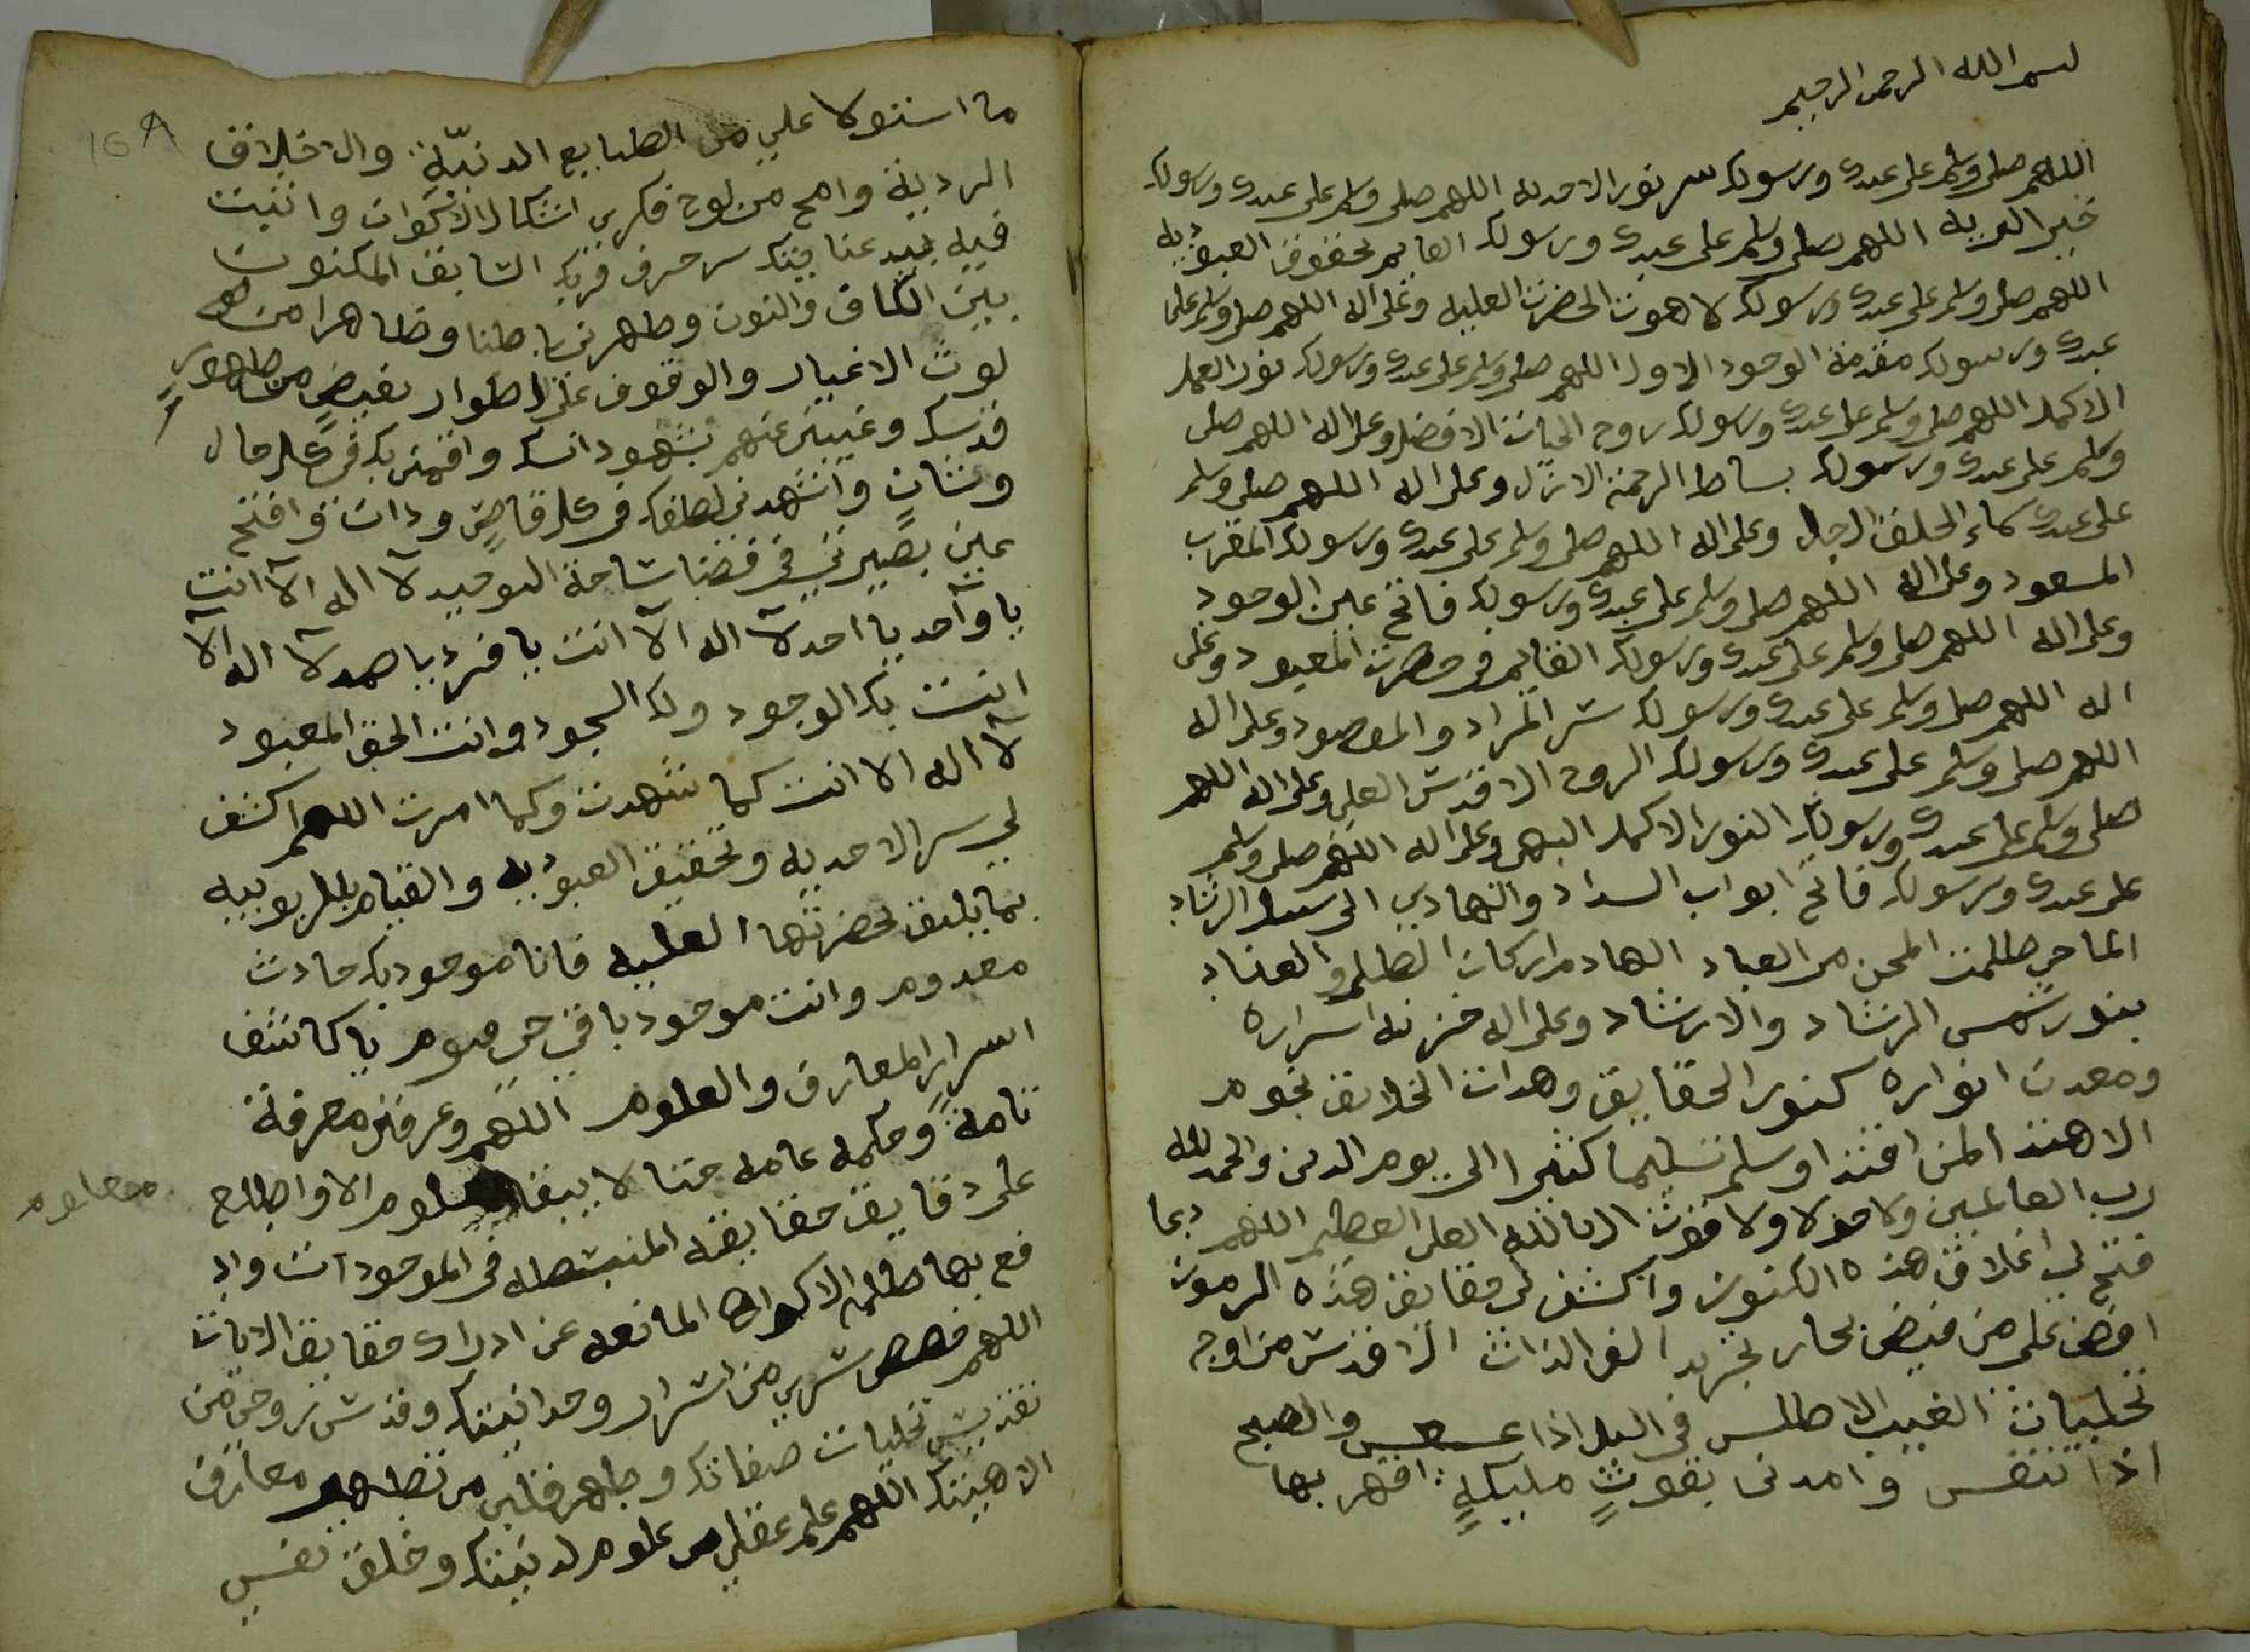 بسم الله الرحمن الرحيم
اللهم صلى وسلم على عبدك ورسولك سر نور الاحديه اللهم صلى وسلم على عبدك ورسولك
اللهم صلى وسلم على عبدك ورسولك القايم بحقوق العبوديه
اللهم صلى وسلم على عبدك ورسولك لاهوت الحضرت العليه وعلى اله اللهم صلى وسلم على
عبدك ورسولك مقدمة الوجود الاول اللهم صلى وسلم على عبدك ورسولك نور العمل
الاكمل اللهم صلى وسلم على عبدك ورسولك روح الحيات الافضل وعلى اله اللهم صلى
وسلم على عبدك ورسولك بساط الرحمة الازل وعلى اله اللهم صلى وسلم
على عبدك الخلق الاجل وعلى اله اللهم صلى وسلم على عبدك ورسولك المقرب
المسعود وعلى اله اللهم صلى وسلم على عبدك ورسولك فاتح عين الوجود
وعلى اله اللهم صلى وسلم على عبدك ورسولك القايم فى حضرت المعبود وعلى
اله اللهم صلى وسلم على عبدك ورسولك سر المراد والمقصود وعلى اله
اللهم صلى وسلم على عبدك ورسولك الروح الاقدس العلى وعلى اله اللهم
صلى وسلم على عبدك ورسولك النور الاكمل البهى وعلى اله اللهم صلى وسلم
على عبدك ورسولك فاتح ابواب السداد والهادي الى سبيل الرشاد
الماحي ظلمت المحن من العباد الهادم اركان الظلم والعناد
بنور شمس الرشاد والارشاد وعلى اله خزنه اسراره
ومعدن انواره كنوز الحقايق وهدات الخلايق نجوم
الاهتدا لمن اقتدا وسلم تسليما كثيرا الى يوم الدين والحمد لله
رب العالمين ولا حولا ولا قوت الا بالله العلى العظيم اللهم
فتح لي اغلاق هذه الكنوز واكشف لى حقايق هذه الرموز
افض على من فيض بحار تجريد الف الذات الاقدس من اوج
تجليات الغيب الاطلس فى اليل اذا عسعس والصبح
اذا تنفس وامدنى بقوتٍ مليكيةٍ اقهر بها
ما استولا علي من الطبايع الدنيّة والاخلاق
الرديه وامح من لوح فكري اشكال الاكوان واثبت
فيه بيد عنايتك سر حرف قربك السابق المكنون
بين الكاف والنون وطهرنى باطنا وظاهرا من
لوث الاغيار والوقوف على الاطوار بفيضٍ من طهور
قدسك وغيبنى عنهم بشهود انسك واقمنى بك فى كل حال
وشانٍ واشهدنى لطفك فى كل قاصٍ ودان وافتح
عين بصيرتي في فضا ساحة التوحيد لا اله الا انت
يا واحد يا احد لا اله الا انت يا فرد يا صمد لا اله الا
انت بك الوجود ولك السجود وانت الحق المعبود
لا اله الا انت كما شهدت وكما امرت اللهم اكشف
لي سر الاحديه وتحقيق العبوديه والقيام بالربوبيه
بما يليق بحضرتها العليه فانا موجود بك حادث
معدوم وانت موجود باقي حي قيوم يا كاشف
اسرار المعارف والعلوم اللهم وعرفنى معرفة
تامة وحكمه عامه حتا لا يبقا معلوم الا واطلع
معلوم
على دقايق حقايقه المنبسطه فى الموجودات واد
فع بها ظلمة الاكوان المانعه عن ادراك حقايق الايات
اللهم خصص سري من اسرار وحدانيتك وقدس روحي من
تقديس تجليات صفاتك وطهر قلبي من تطهير معارف
الاهيتك اللهم علم عقلي من علوم لدنيتك وخلق نفسي
16A